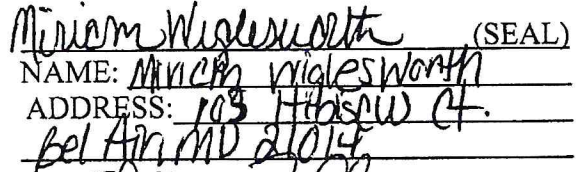 Miriam Wiglesworth (SEAL)
NAME: Miriam Wiglesworth
ADDRESS: 103 Hibiscus Ct.
Bel Air, MD 21014